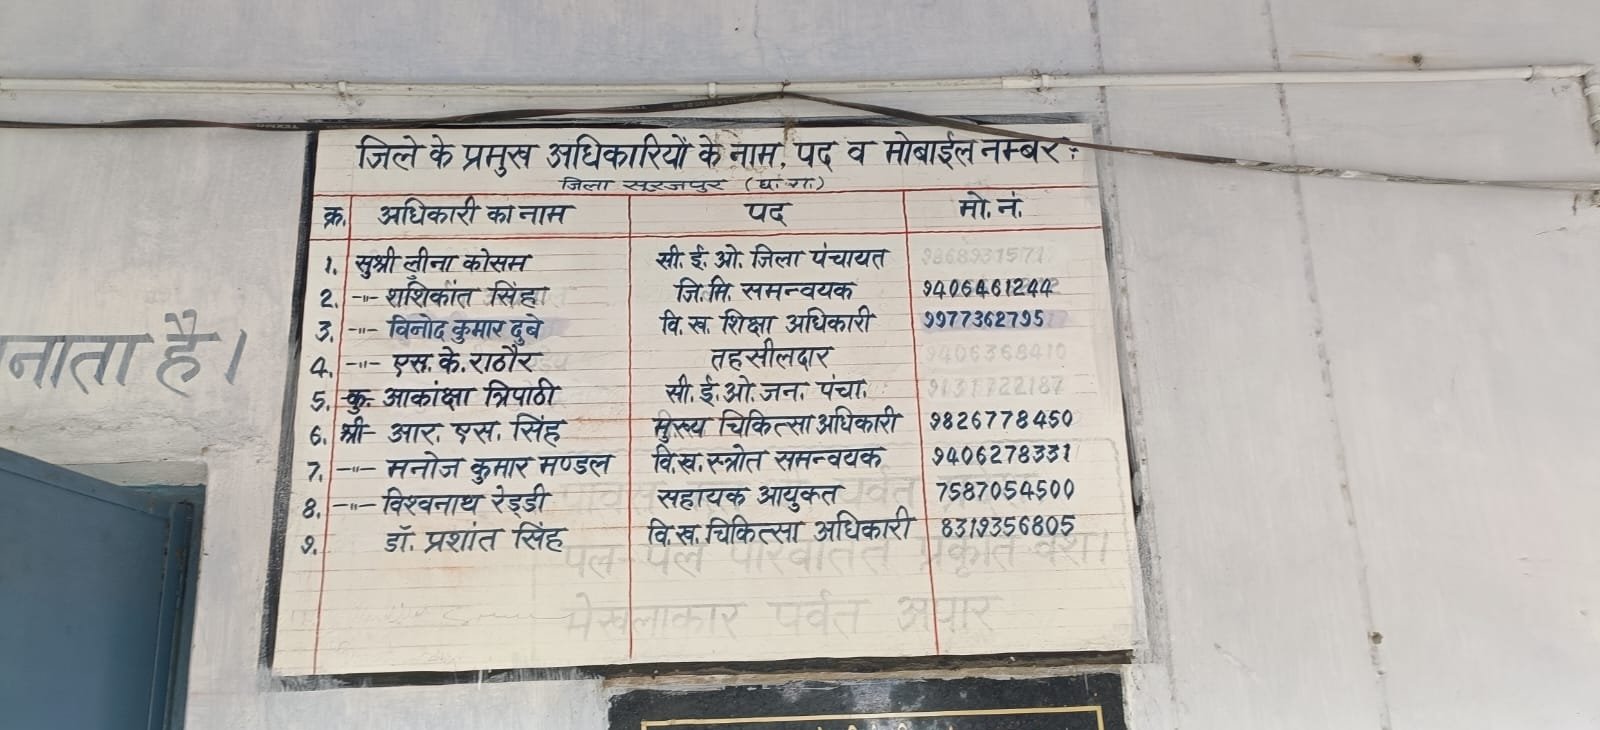 जिले के प्रमुख अधिकारियों के नाम, पद व मोबाईल नम्बर :
जिला सूरजपुर (छ.ग.)
क्र. अधिकारी का नाम पद मो.नं.
1. सुश्री लीना कोसम सी.ई.ओ. जिला पंचायत
2. -"- शशिकांत सिंह जि.मि. समन्वयक 9406461244
3. -"- विनोद कुमार दुबे वि.ख. शिक्षा अधिकारी 9977362795
4. -"- एस. के. राठौर तहसीलदार 9406368410
5. कु. आकांक्षा त्रिपाठी सी.ई.ओ. जन. पंचा. 9131722187
6. श्री- आर. एस. सिंह मुख्य चिकित्सा अधिकारी 9826778450
7. -"- मनोज कुमार मण्डल वि.ख. स्त्रोत समन्वयक 9406278331
8. -"- विश्वनाथ रेड्डी सहायक आयुक्त 7587054500
9. डॉ. प्रशांत सिंह वि.ख. चिकित्सा अधिकारी 8319356805
पल-पल परिवर्तित प्रकृति वेश।
मेखलाकार पर्वत अपार
नाता है।